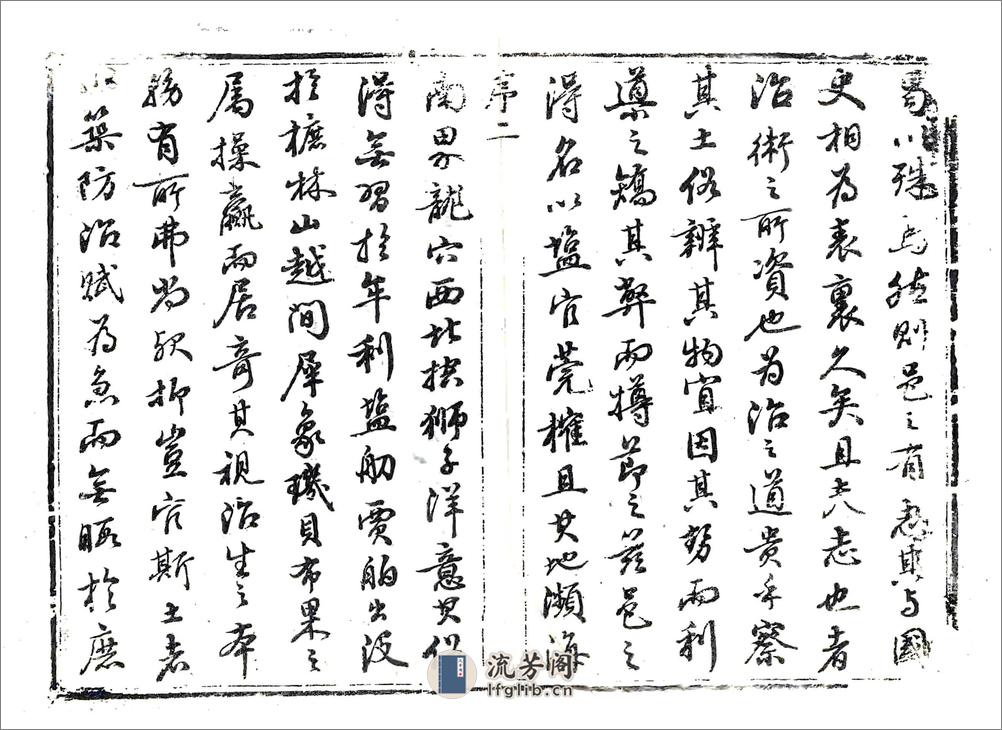 以殊焉然則邑之有志其与國
史相為表裏久矣且夫志也者
治術之所資也為治之道貴乎察
其土俗辨其物宜因其勢而利
導之矯其弊而撙節之茲邑之
得名以塩官莞榷且其地瀕海
序二
南界龍穴西北控獅子洋意其俗
得無習於牟利塩舠賈舶出没
於櫨林山越間犀象璣貝布果之
属操贏而居奇其視治生之本
務有所弗尚歟抑豈官斯土者
以築防治賦為急而無暇於庶
流芳阁
lfglib.cn